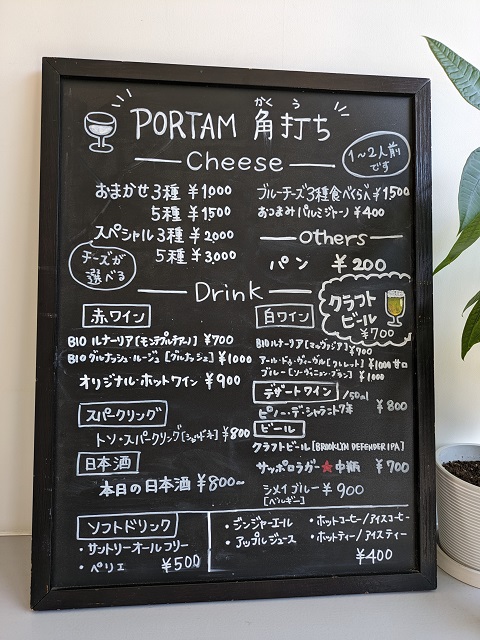 かく う
PORTAM 角打ち
1~2人前
です
Cheese
おまかせ 3種 ¥1000
5種 ¥1500
スペシャル 3種 ¥2000
5種 ¥3000
チーズが
選べる
ブルーチーズ3種食べくらべ ¥1500
おつまみパルミジャーノ ¥400
Others
パン ¥200
クラフト
ビール
¥700
Drink
赤ワイン
BIO ルナーリア[モンテプルチアーノ] ¥700
BIO グルナッシュ・ルージュ [グルナッシュ] ¥1000
オリジナル・ホットワイン ¥900
スパークリング
トソ・スパークリング[シャルドネ] ¥800
日本酒
本日の日本酒 ¥800~
白ワイン
BIO ルナーリア[マルヴァジア] ¥700
[クレレット] ¥1000 甘口
[ソーヴィニヨン・ブラン] ¥1000
デザートワイン /50ml
ピノー・デ・シャラント7年 ¥800
ビール
クラフトビール[BROOKLYN DEFENDER IPA]
サッポロラガー★中瓶 ¥700
シメイブルー ¥900
[ベルギー]
ソフトドリンク
・サントリーオールフリー
・ペリエ ¥500
・ジンジャーエール
・アップルジュース
・ホットコーヒー/アイスコーヒー
・ホットティー/アイスティー
¥400